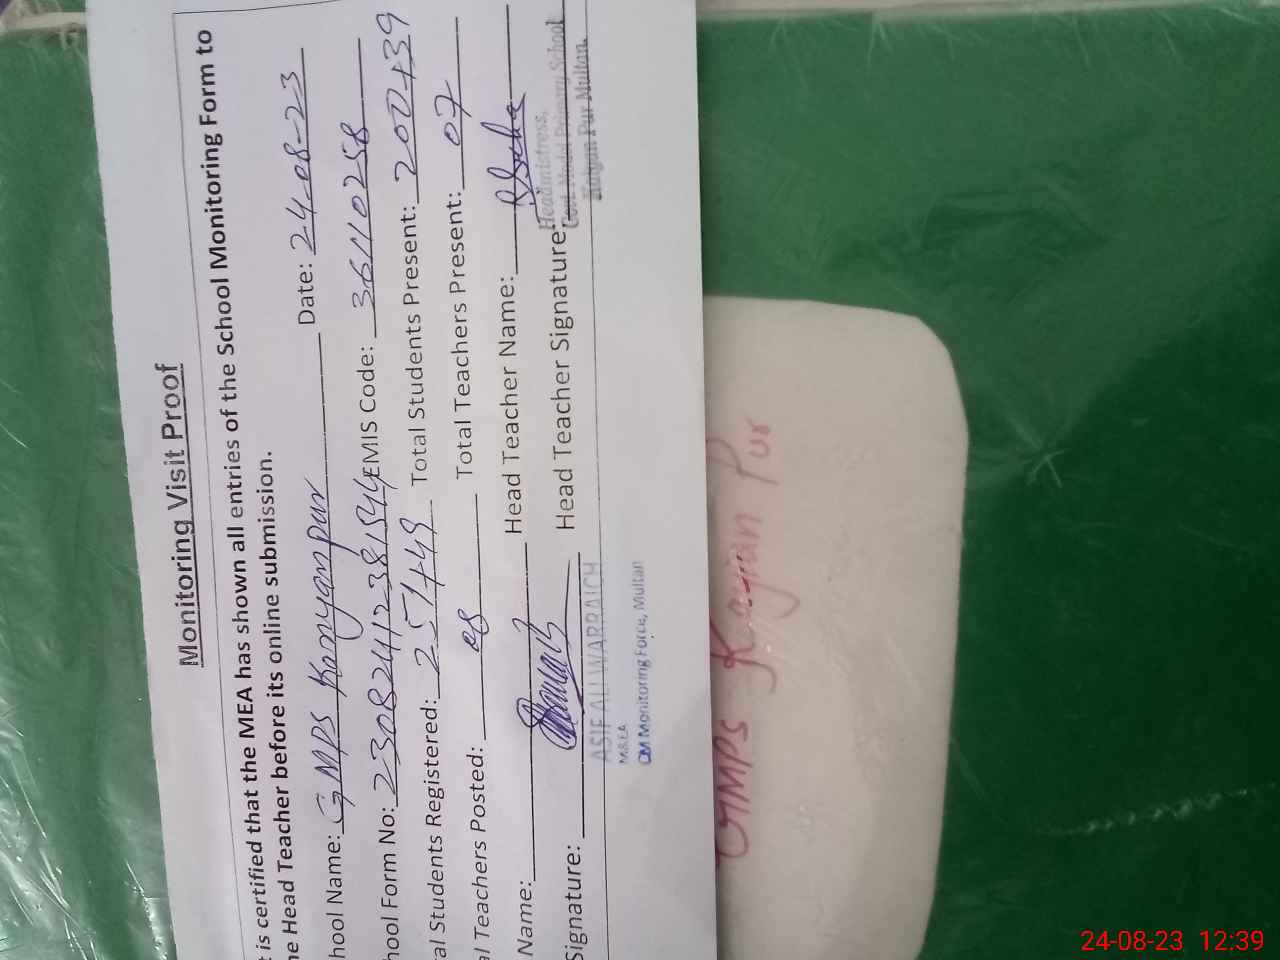 Monitoring Visit Proof
t is certified that the MEA has shown all entries of the School Monitoring Form to
he Head Teacher before its online submission.
hool Name: GMPS Kamyanpur Date: 24-08-23
hool Form No: 23082412381544 EMIS Code: 36110258
al Students Registered: 251+49 Total Students Present: 200+39
al Teachers Posted: 08 Total Teachers Present: 07
Name: Head Teacher Name:
Signature: Head Teacher Signature:
Headmistress,
Govt. Model Primary School
Kaiyan Pur Multan.
ASIF ALI WARRAICH
M&EA
CM Monitoring Force, Multan
GMPS Kayian Pur
24-08-23 12:39